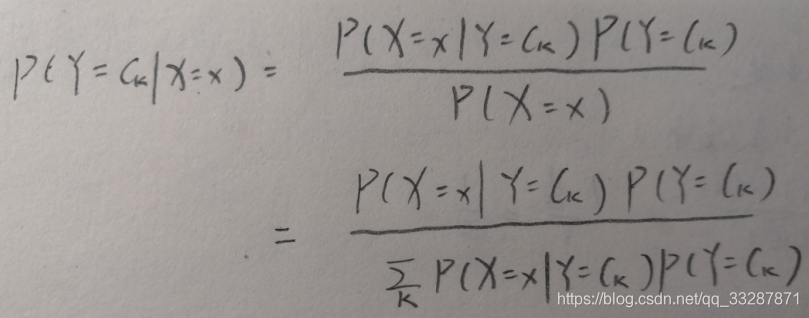 P(Y=Cₖ|X=x) = P(X=x|Y=Cₖ)P(Y=Cₖ)
P(X=x)
= P(X=x|Y=Cₖ)P(Y=Cₖ)
∑ₖ P(X=x|Y=Cₖ)P(Y=Cₖ)
https://blog.csdn.net/qq_33287871